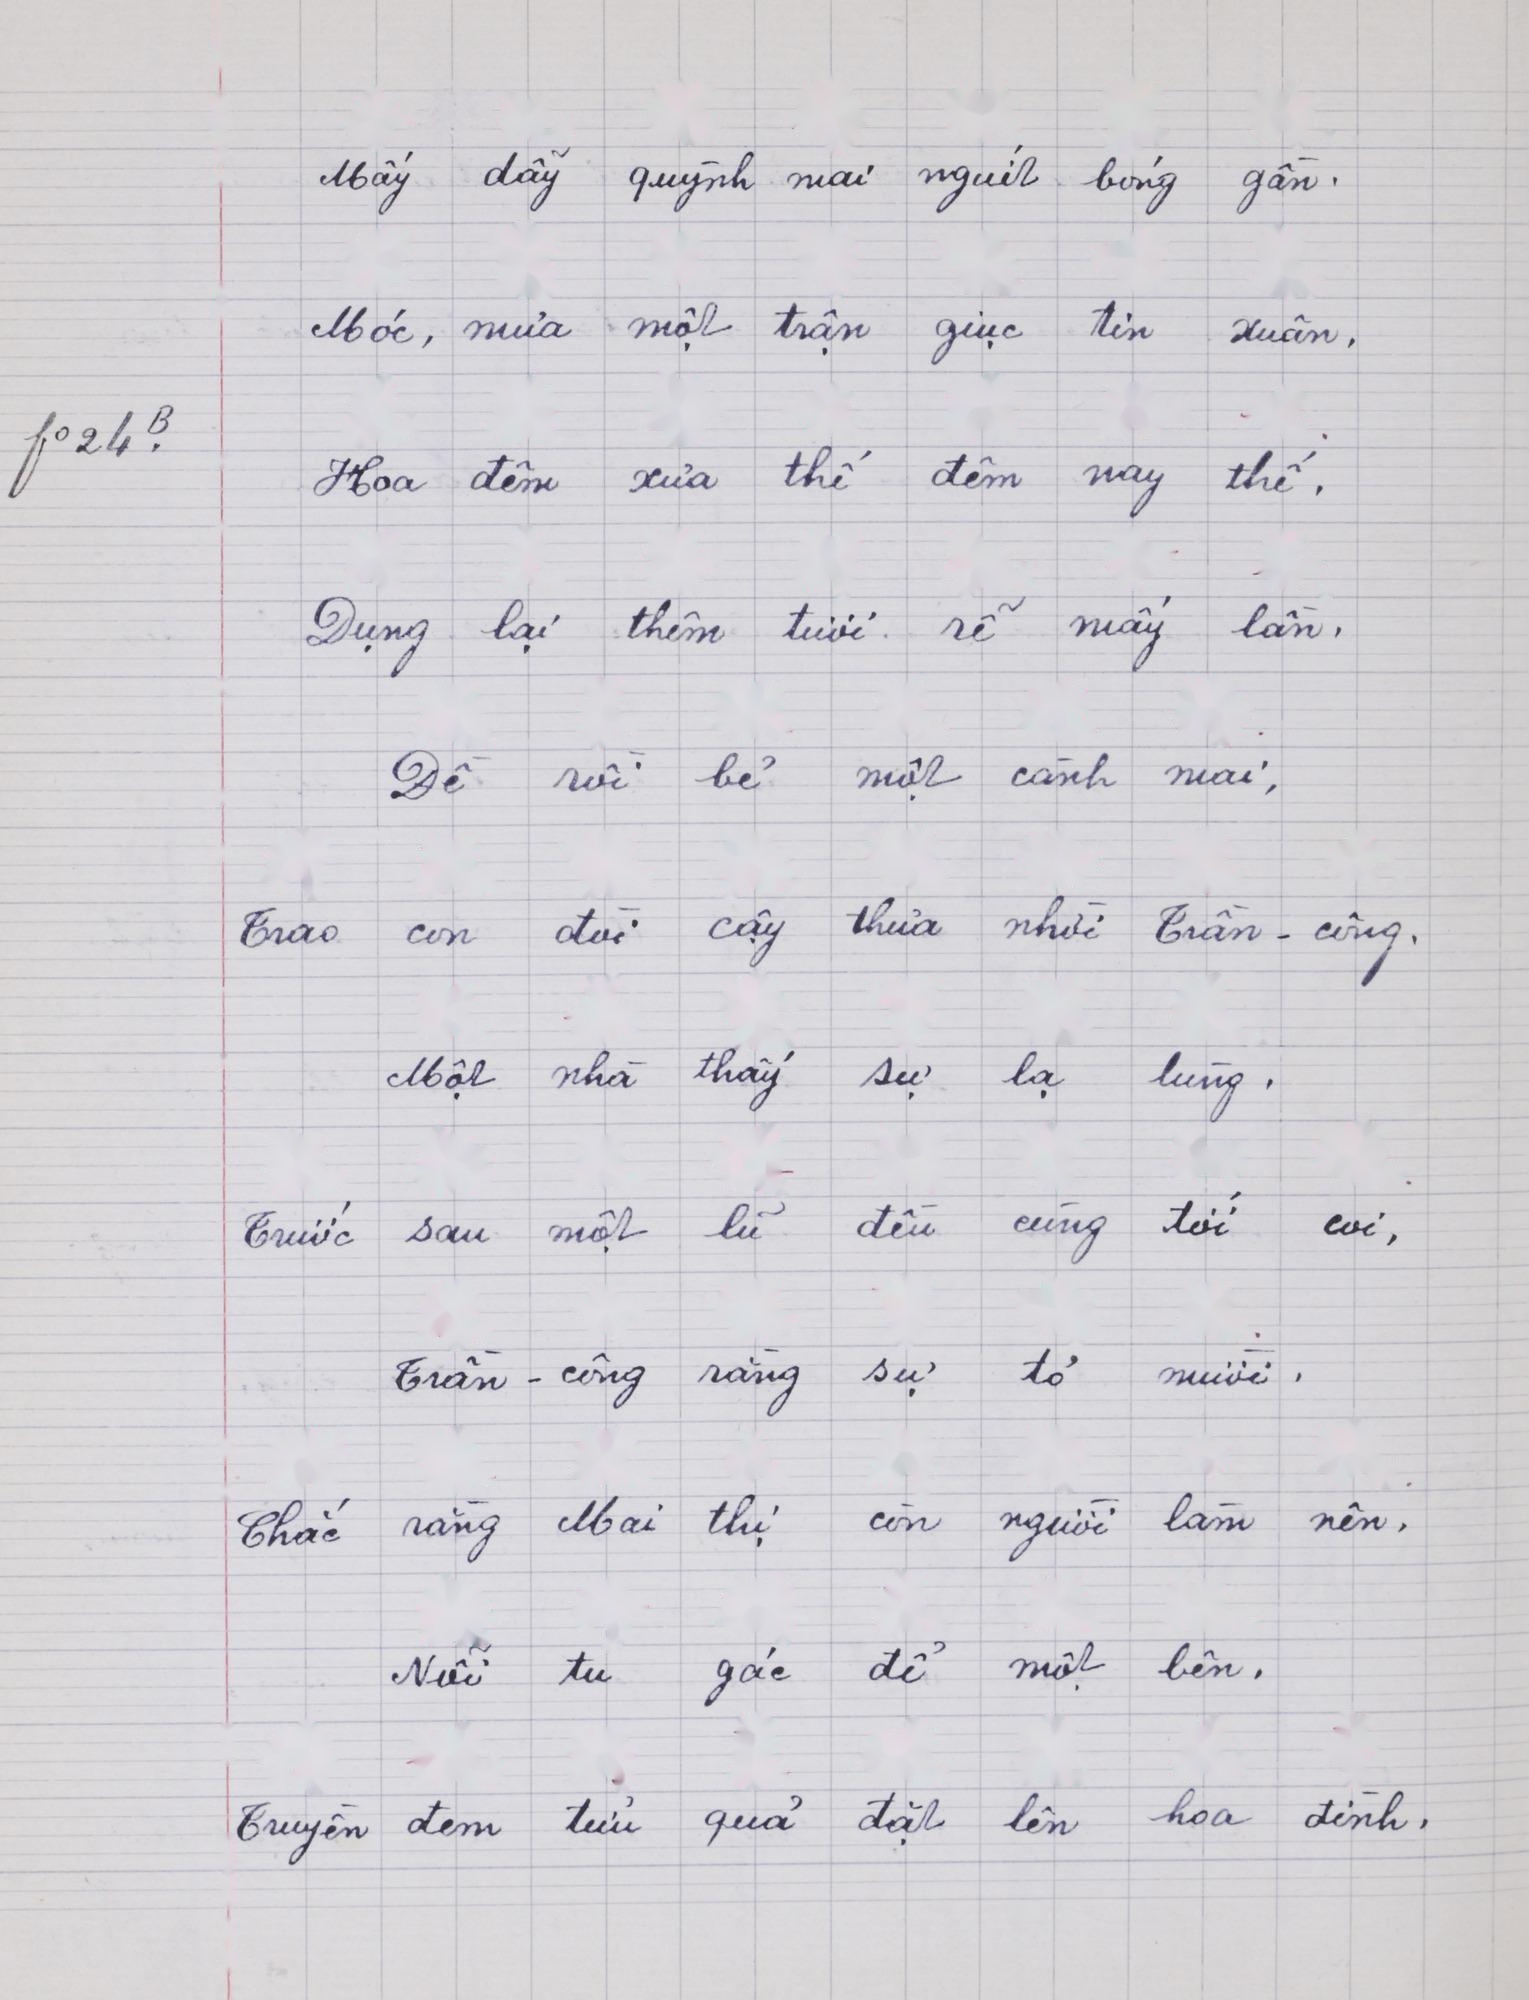 Mấy dẫy quỳnh mai nguít bóng gần.
Móc, mưa một trận giục tin xuân,
fº 24 B.
Hoa đêm xưa thế đêm nay thế,
Dụng lại thêm tươi rẽ mấy lần.
Đề rồi bẻ một cành mai,
Trao con đòi cậy thưa nhời Trần-công.
Một nhà thấy sự lạ lùng,
Trước sau một lũ đều cùng tới coi,
Trần-công rằng sự tỏ mười,
Chắc rằng Mai thị còn người làm nên.
Nỗi tu gác để một bên,
Truyền đem tửu quả đặt lên hoa đình.